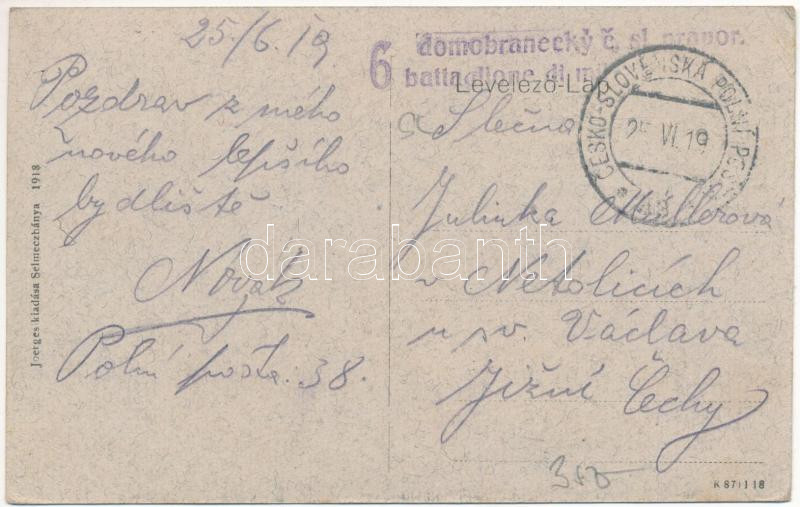 25/6.19
Pozdrav z mého
nového lepšího
bydliště
Novák
Polní pošta 38.
Joerges kiadása Selmeczbánya 1918
6 domobranecký č. sl. prapor.
battaglione di
Levelező-Lap
ČESKO-SLOVENSKÁ POLNÍ POŠTA
25 VI. 19
Slečna
Julinka Müllerová
v Netolicích
u sv. Václava
Jižní Čechy
K 871118
darabanth